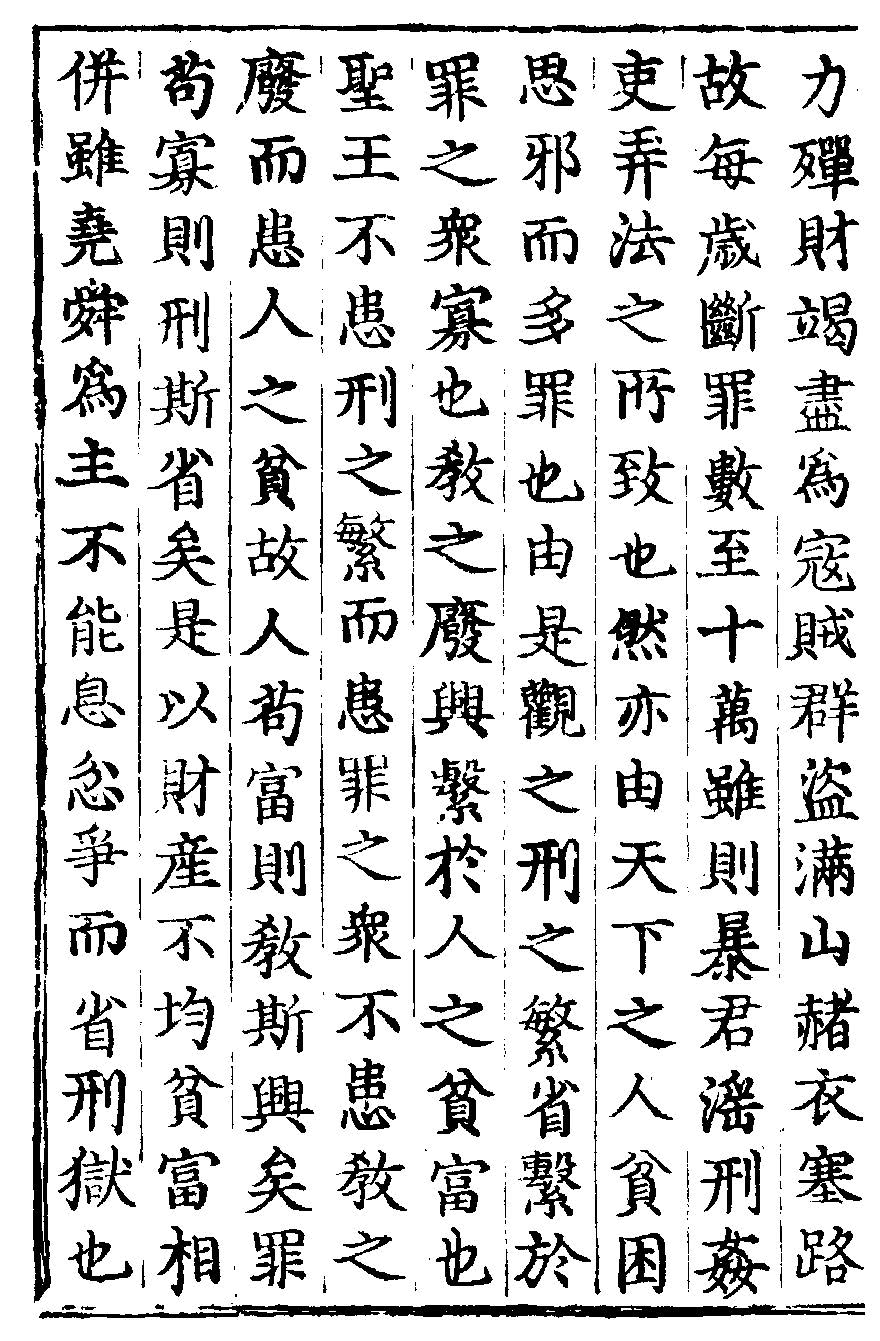 力殫財竭盡為寇賊群盜滿山赭衣塞路
故每歲斷罪數至十萬雖則暴君淫刑姦
吏弄法之所致也然亦由天下之人貧困
思邪而多罪也由是觀之刑之繁省繫於
罪之衆寡也教之廢興繫於人之貧富也
聖王不患刑之繁而患罪之衆不患教之
廢而患人之貧故人苟富則教斯興矣罪
苟寡則刑斯省矣是以財産不均貧富相
併雖堯舜為主不能息忿爭而省刑獄也